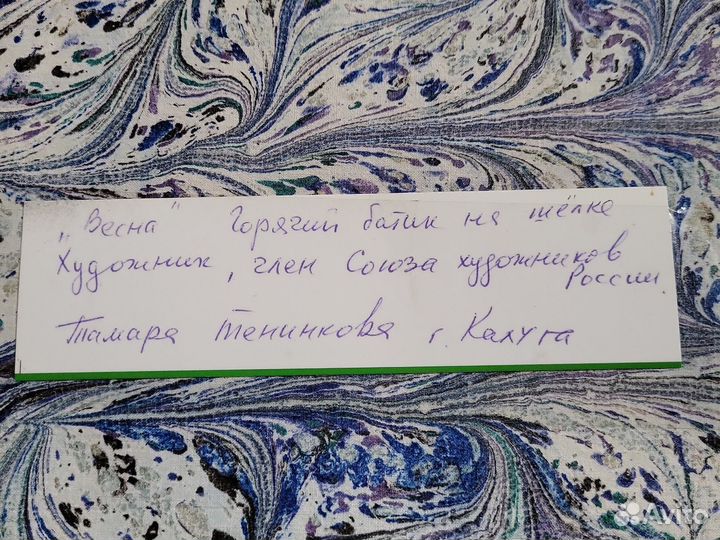 „Весна" Горячий батик на шёлке
Художник, член Союза художников
России.
Тамара Тенинкова г. Калуга
Avito